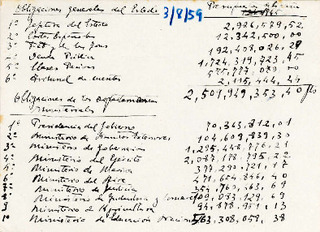 Obligaciones generales del Estado 3/8/59
1º Jefatura del Estado 2,926,579,52
2º Cortes Españolas 12.342,500,00
3º 192,408,026,28
4º 1,724,319,723,45
5º Clases Pasivas
6º Tribunal de cuentas 2,115,444,24
2,509,949,353,40
Obligaciones de los departamentos ministeriales
1º Presidencia del Gobierno 70,363,812,01
2º Ministerio de Asuntos Exteriores 104,609,839,30
3º Ministerio de Gobernación 1,295,448,776,21
4º Ministerio del Ejército 2,087,178,795,22
5º Ministerio de Marina 397,290,721,17
6º Ministerio del Aire 271,664,846,40
7º Ministerio de Justicia 354,760,163,69
8º Ministerio de Industria y Comercio 109,083,129,69
9º Ministerio de Agricultura 96,878,151,13
10 Ministerio de Educación Nacional 563,308,058,38